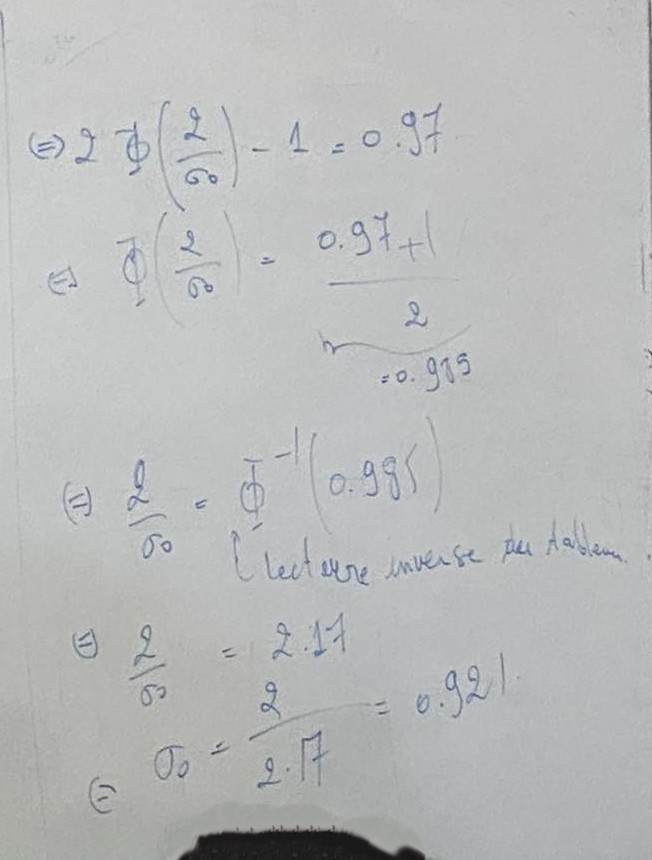 (=) 2 Φ(2/σ₀) - 1 = 0.97
(=) Φ(2/σ₀) = (0.97+1)/2
= 0.985
(=) 2/σ₀ = Φ⁻¹(0.985)
( lecture inverse du tableau.
(=) 2/σ₀ = 2.17
(=) σ₀ = 2/2.17 = 0.921.